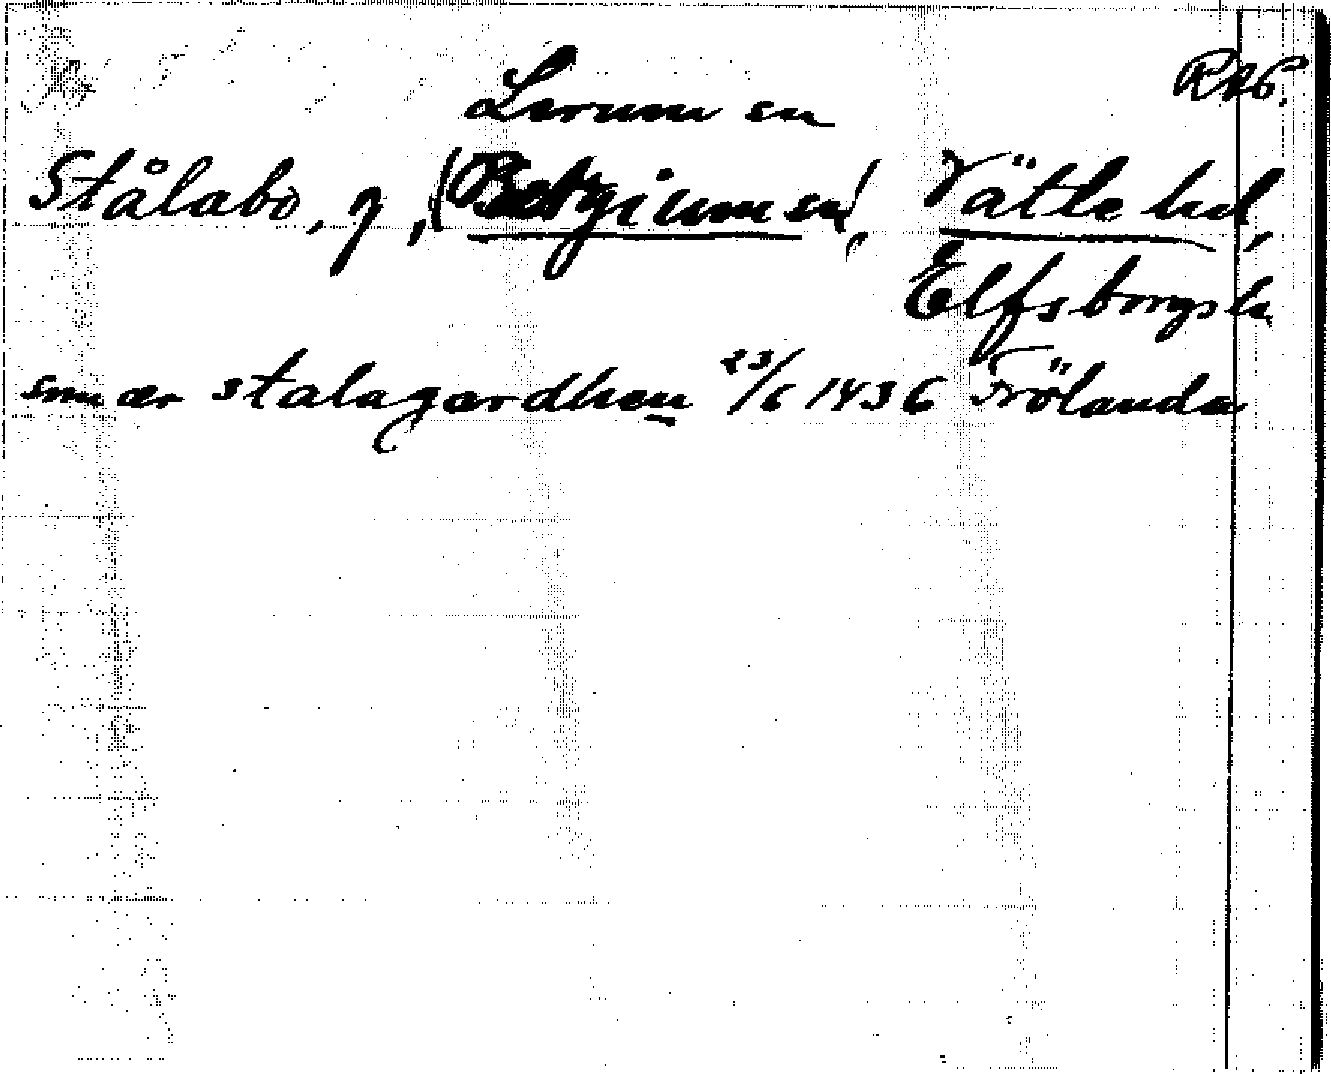 RAP.
Lerum sn
Stålabo, g, (Bergums sn), Vättle hd,
Elfsborgs l.
som ær stalagardhen 23/6 1436 Frölanda